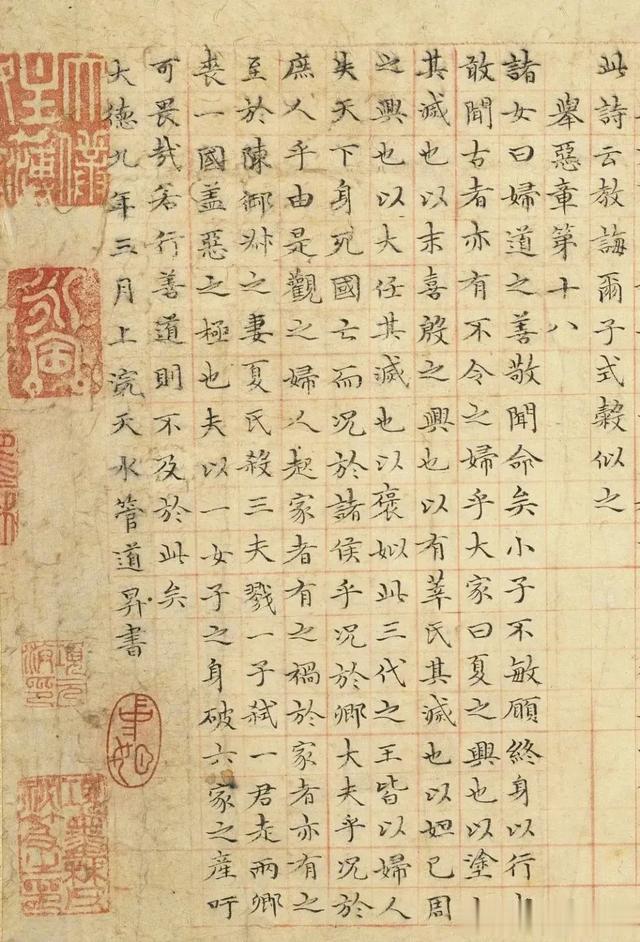 此詩云教誨爾子式穀似之
舉惡章第十八
諸女曰婦道之善敬聞命矣小子不敏願終身以行卜
敢聞古者亦有不令之婦乎大家曰夏之興也以塗卜
其滅也以末喜殷之興也以有莘氏其滅也以妲己周
之興也以大任其滅也以褒姒此三代之王皆以婦人
失天下身死國亡而況於諸侯乎況於卿大夫乎況於
庶人乎由是觀之婦人起家者有之禍於家者亦有之
至於陳御叔之妻夏氏殺三夫戮一子弒一君走兩卿
喪一國盖惡之極也夫以一女子之身破六家之產吁
可畏哉若行善道則不及於此矣
大德九年三月上浣天水管道昇書